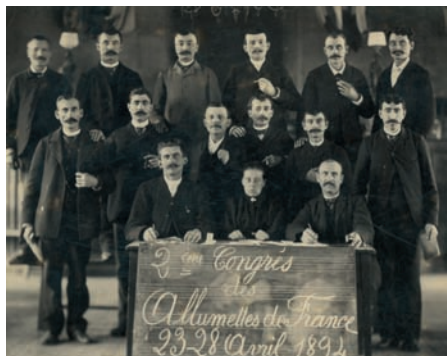 2ème Congrès
des
Allumettes de France
23-28 Avril